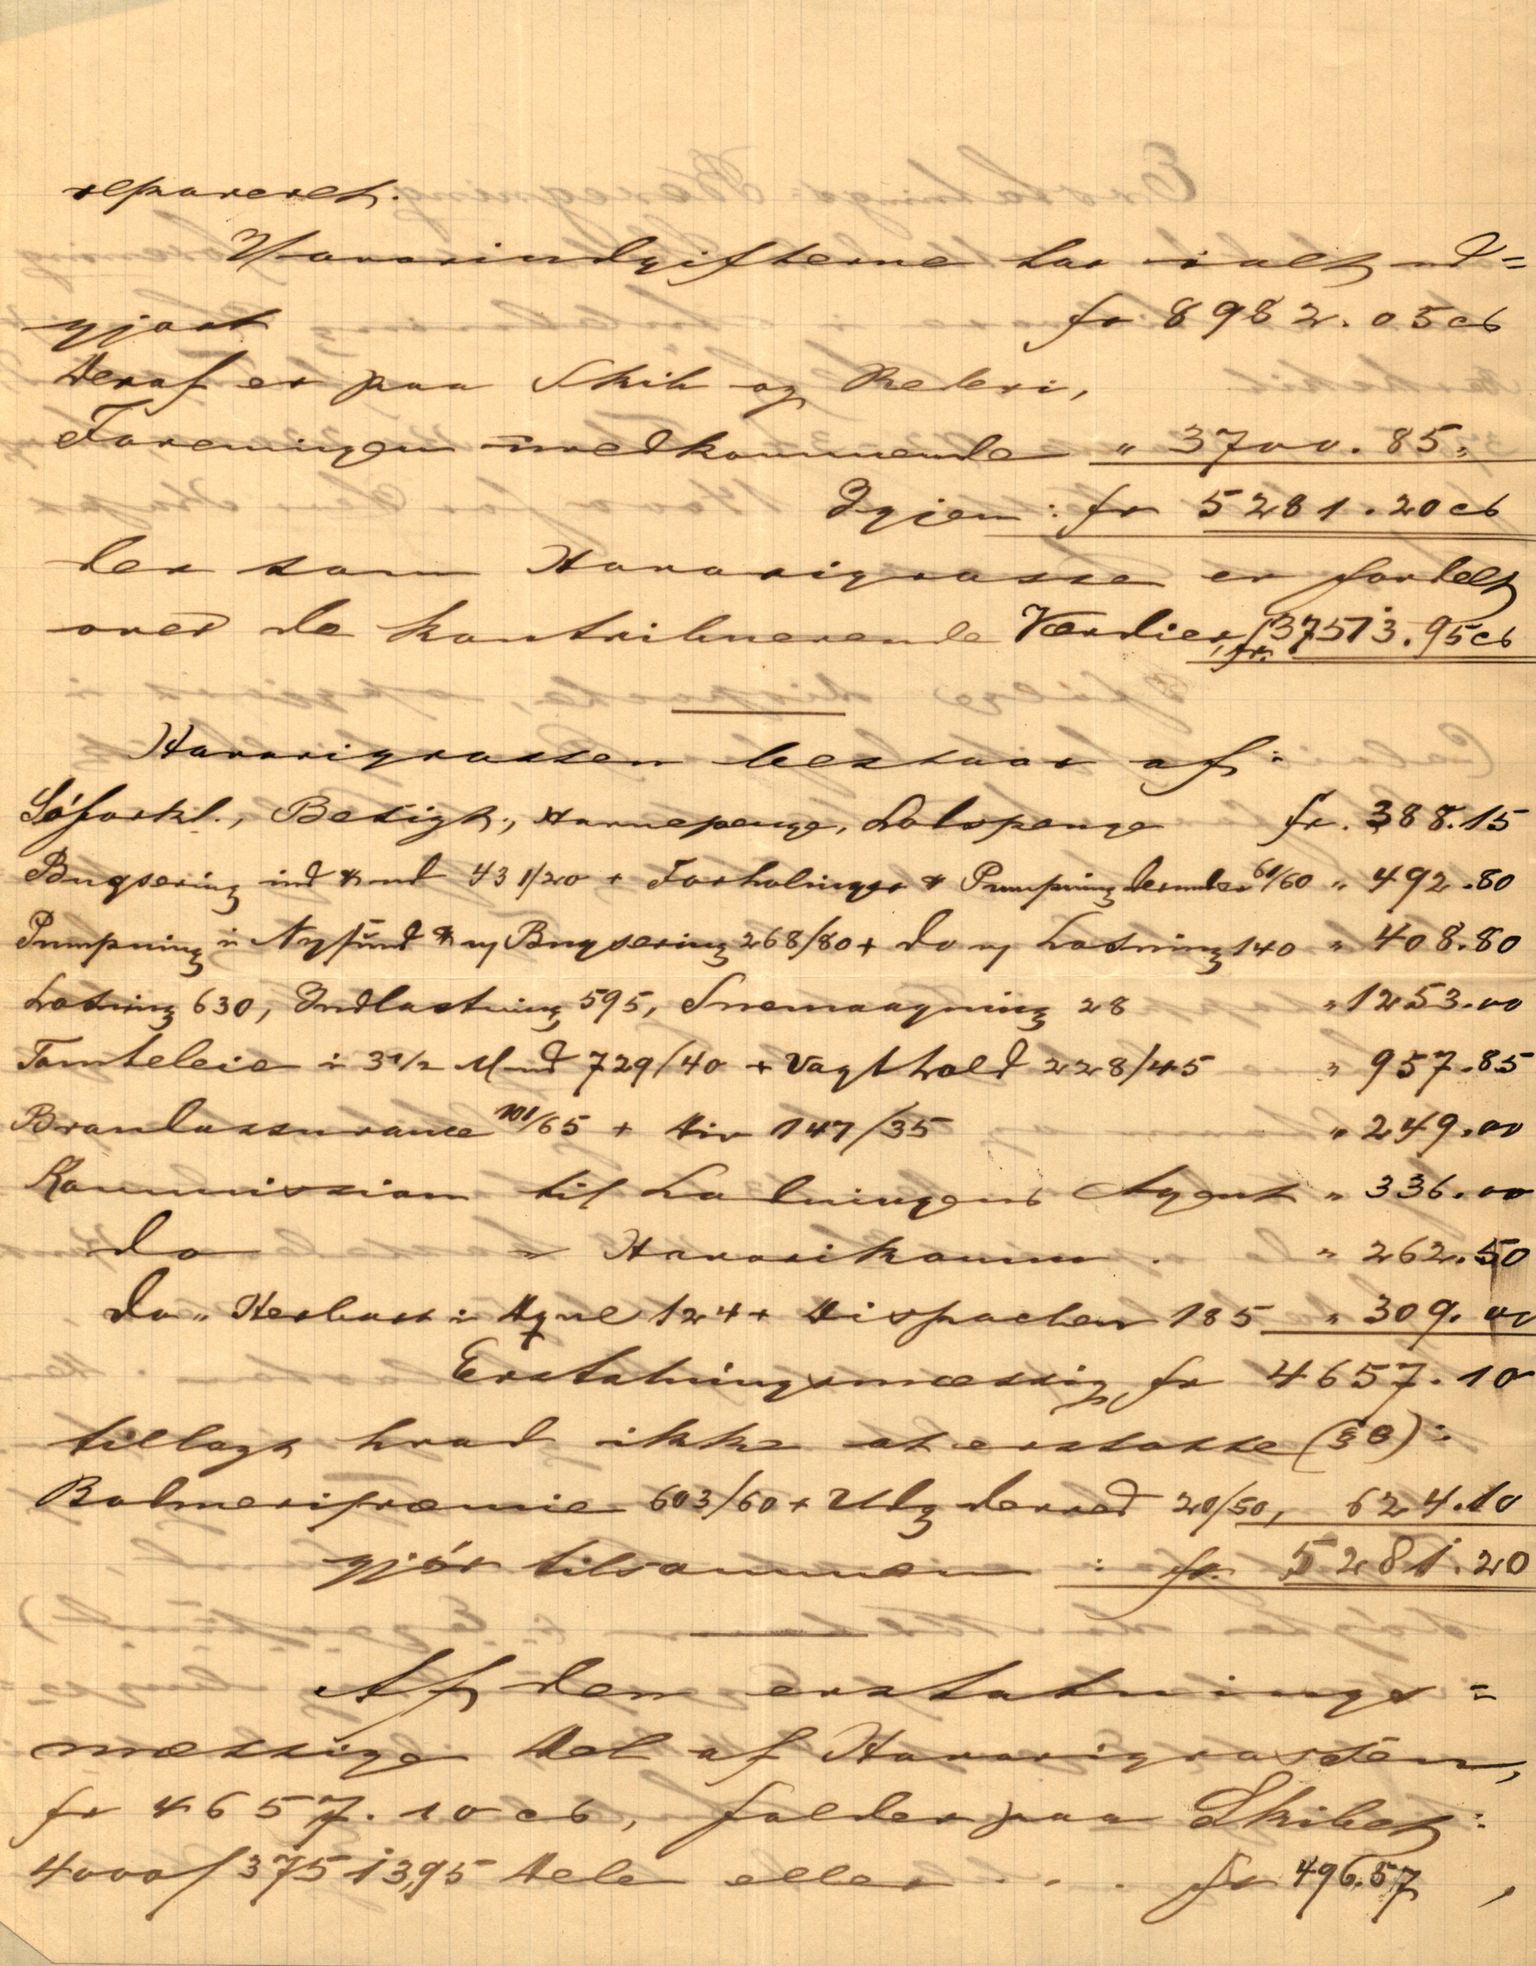 repareret.
Havariudgifterne har ialt ud=
gjort fr 8982.05 cts
Deraf er paa Skib og Rederi,
Foreningen uvedkommende " 3700.85 "
Igjen: fr 5281.20 cts
der som Havarigrosse er fordelt
over de kontribuerende Værdier, fr. 37513.95 cts
Havarigrossen bestaar af:
Söforkl., Besigt., Havnepenge, Lodspenge fr. 388.15
Bugsering ind & ud 431/20 + Forhalinger & Pumpning derunder 61/60 " 492.80
Pumpning i Nyfund & ny Bugsering 268/80 + do ny Losning 140 " 408.80
Losning 630, Indlastning 595, Snemaagning 28 " 1253.00
Tomteleie i 3½ Mnd 729/40 + Vagthold 228/45 " 957.85
Brandassurance 101/65 + Div 147/35 " 249.00
Kommission til Ladningens Agent " 336.00
do " Havarikomm. " 262.50
do " Herbst i 124 + Dispachen 185 " 309.00
Erstatningsmæssig fr 4657.10
tillagt hvad ikke at erstatte (§8):
Bodmeripræmie 603/60 + Udg derved 20/50, 624.10
gjör tilsammen : fr. 5281.20
Af den erstatnings=
mæssige Del af Havarigrossen,
fr 4657.10 cts, falder paa Skibet:
4000/37513,95 Dele eller . . . fr 496.57,